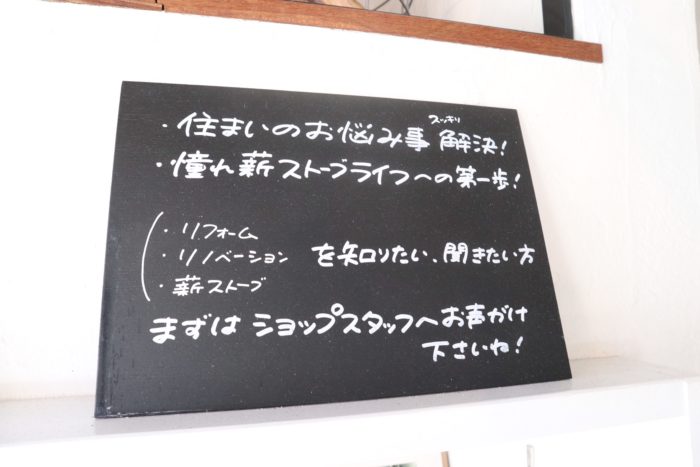 ・住まいのお悩み事 スッキリ 解決!
・憧れ薪ストーブライフへの第一歩!
・リフォーム
・リノベーション を知りたい、聞きたい方
・薪ストーブ
まずは ショップスタッフへお声がけ
下さいね!